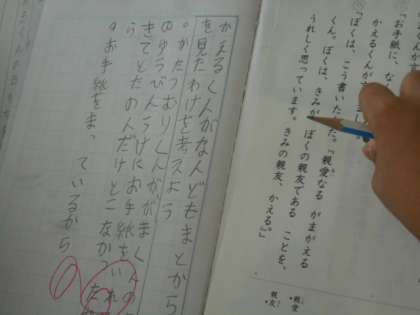 「お手紙に、な
かえるくんが
「ぼくは、こう書いた
だ。『親愛なる がまがえる
くん。ぼくは、きみが ぼくの親友である ことを、
うれしく思っています。きみの親友、かえる。』」
・親愛
親友
かえるくんがなんどもまどから
を見たわけを考えよう
。かたつむりくんががまくん
のゆうびんうけにお手紙をいれ
きてとたのんだけどこなか
ら
。お手紙をまっているから